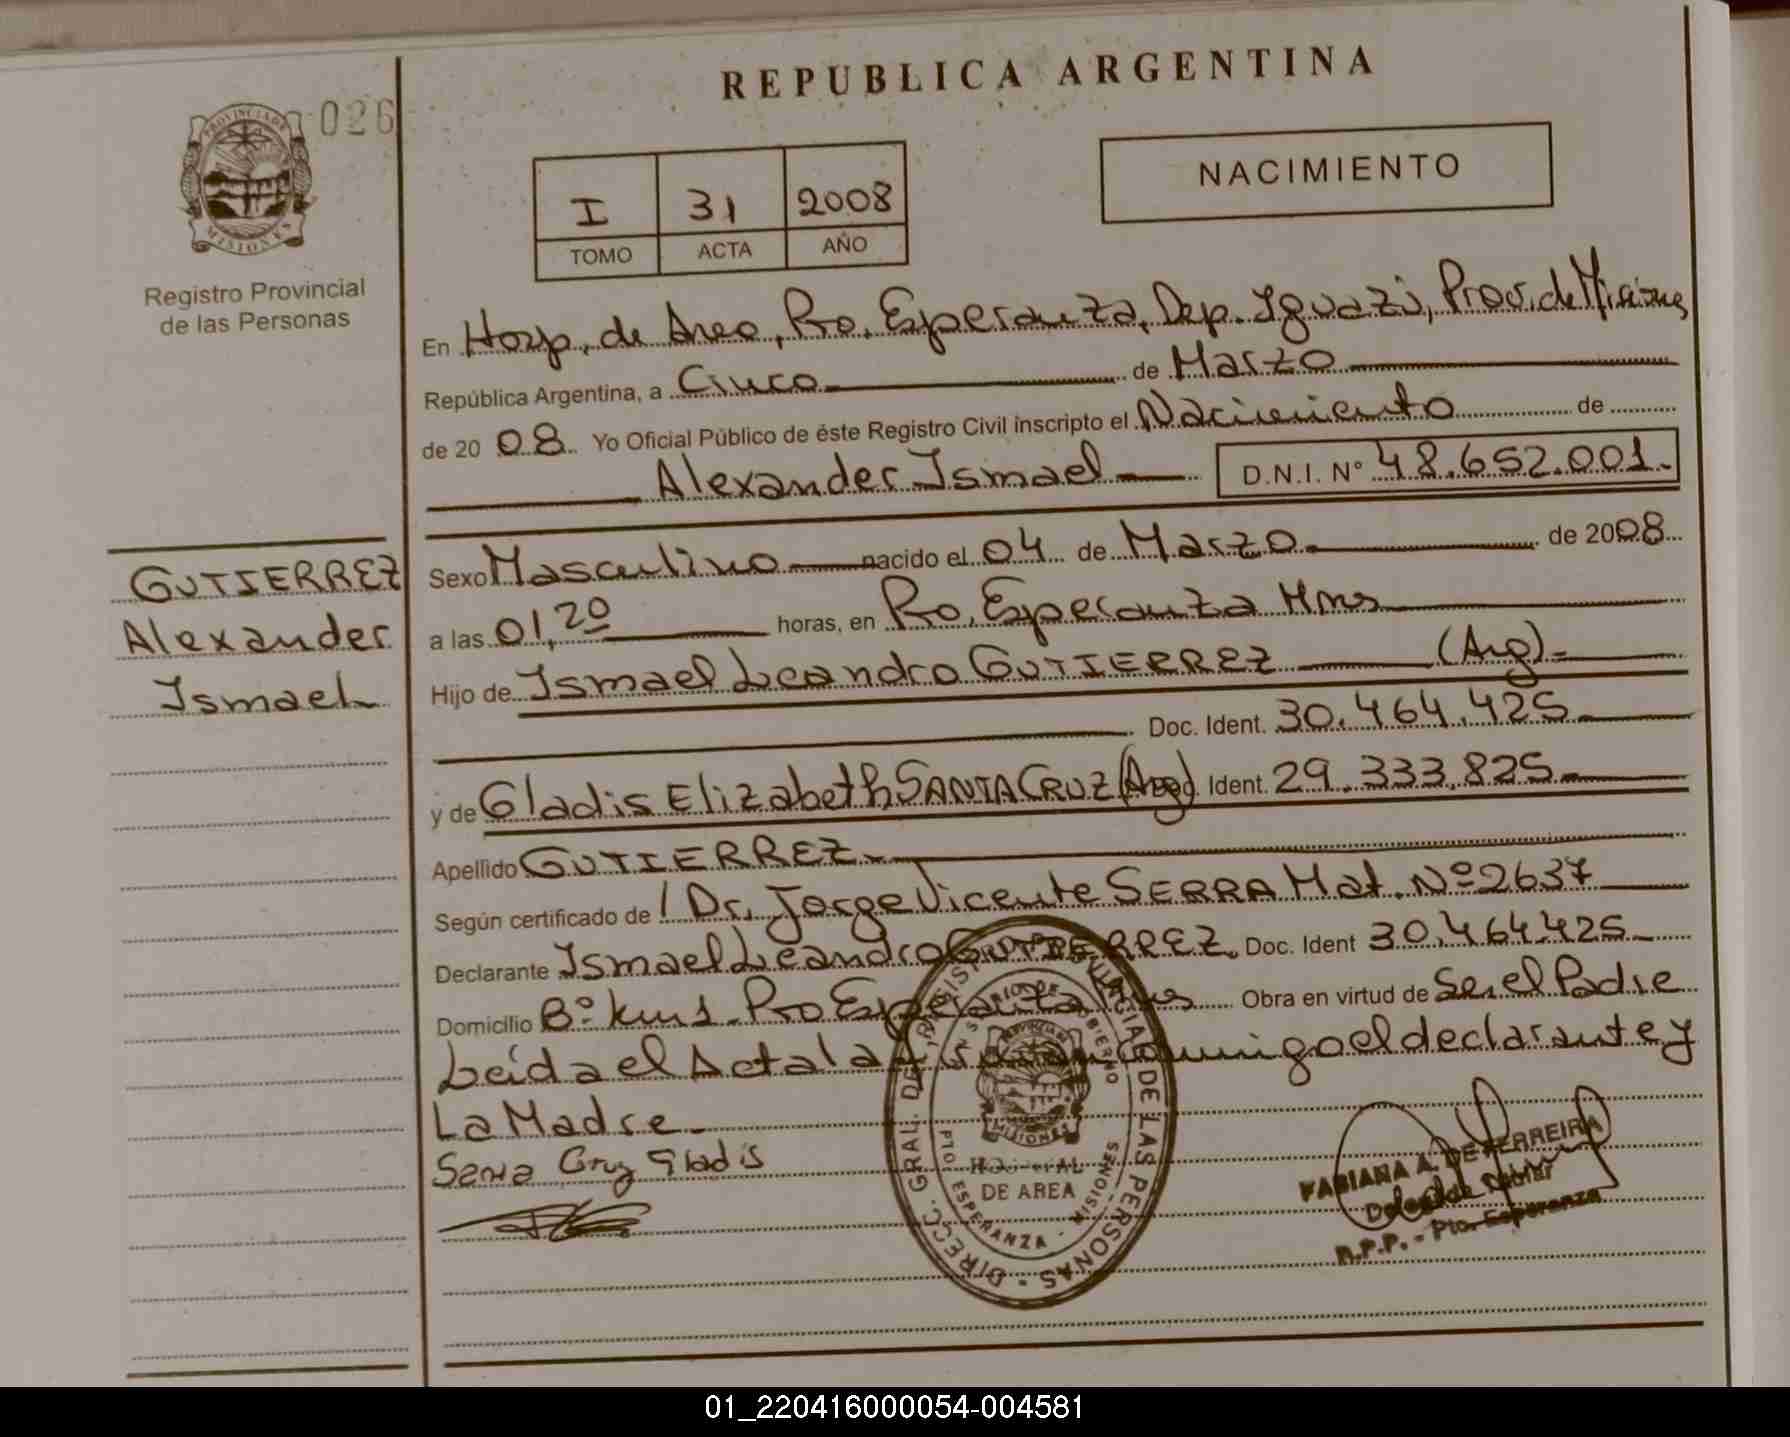 REPUBLICA ARGENTINA
026
PROVINCIA DE
MISIONES
Registro Provincial
de las Personas
I 31 2008
TOMO ACTA AÑO
NACIMIENTO
En Hosp. de Area, Pto. Esperanza, Dep. Iguazú, Prov. de Misiones
República Argentina, a Cinco de Marzo
de 20 08 Yo Oficial Público de éste Registro Civil inscripto el Nacimiento de
Alexander Ismael D.N.I. N° 48.652.001.
GUTIERREZ
Alexander
Ismael
Sexo Masculino nacido el 04 de Marzo de 2008
a las 01,20 horas, en Pto. Esperanza Mnes
Hijo de Ismael Leandro GUTIERREZ (Arg)
Doc. Ident. 30.464.425
y de Gladis Elizabeth SANTA CRUZ (Arg) Doc. Ident. 29.333.825
Apellido GUTIERREZ
Según certificado de Dr. Jorge Vicente SERRA Mat. Nº 2637
Declarante Ismael Leandro GUTIERREZ Doc. Ident 30.464.425
Domicilio Bº km 1 Pto Esperanza Mnes Obra en virtud de Ser el Padre
Leída el Acta la conmigo el declarante y
La Madre.
Santa Cruz Gladis
DIRECC. GRAL. DEL REGISTRO PROVINCIAL DE LAS PERSONAS
PROVINCIA DE
MISIONES
HOSPITAL
DE AREA
PTO ESPERANZA - MISIONES
FABIANA A. DE FERREIRA
R.P.P. - Pto. Esperanza
01_220416000054-004581